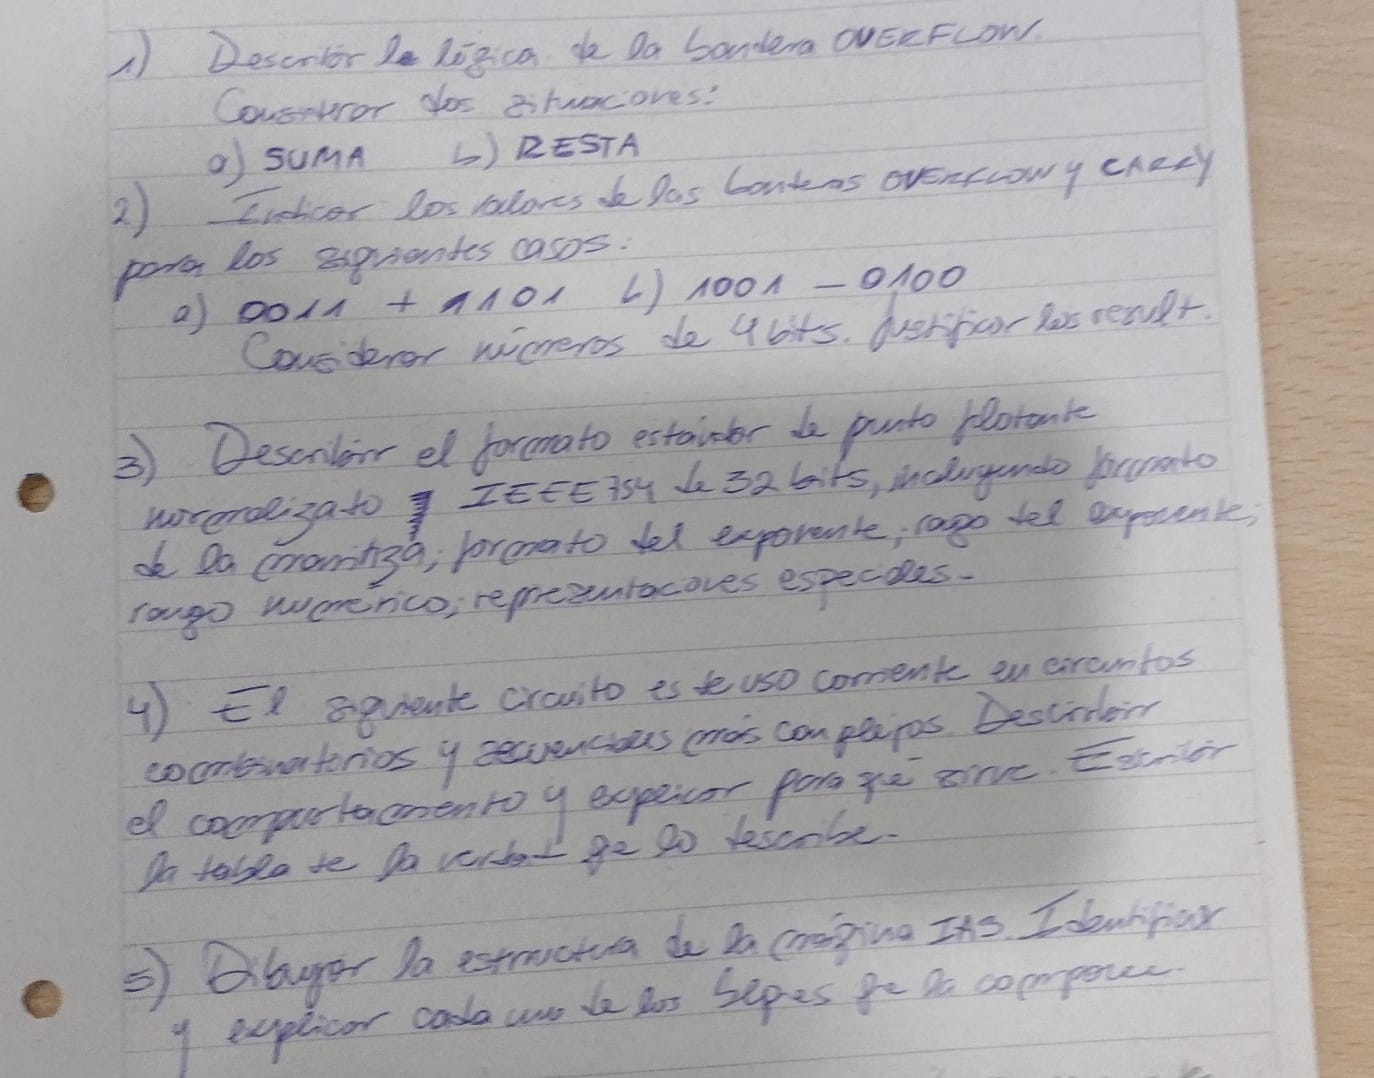 1) Describir la lógica de la bandera OVERFLOW.
Considerar dos situaciones:
a) SUMA b) RESTA
2) Indicar los valores de las banderas OVERFLOW y CARRY
para los siguientes casos:
a) 0011 + 1101 b) 1001 - 0100
Considerar números de 4 bits. Justificar los result.
3) Describir el formato estándar de punto flotante
normalizado IEEE754 de 32 bits, incluyendo formato
de la mantiza; formato del exponente; rago del exponente;
rango numérico; reprezentacoves especiales.
4) El siguiente circuito es de uso corriente en circuitos
combinatorios y secuenciales más complejos. Describir
el comportamiento y explicar para qué sirve. Escribir
la tabla de la verdad qe lo describe.
5) Dibujar la estructura de la máqina IAS. Identificar
y explicar cada uno de los blqes qe la componen.